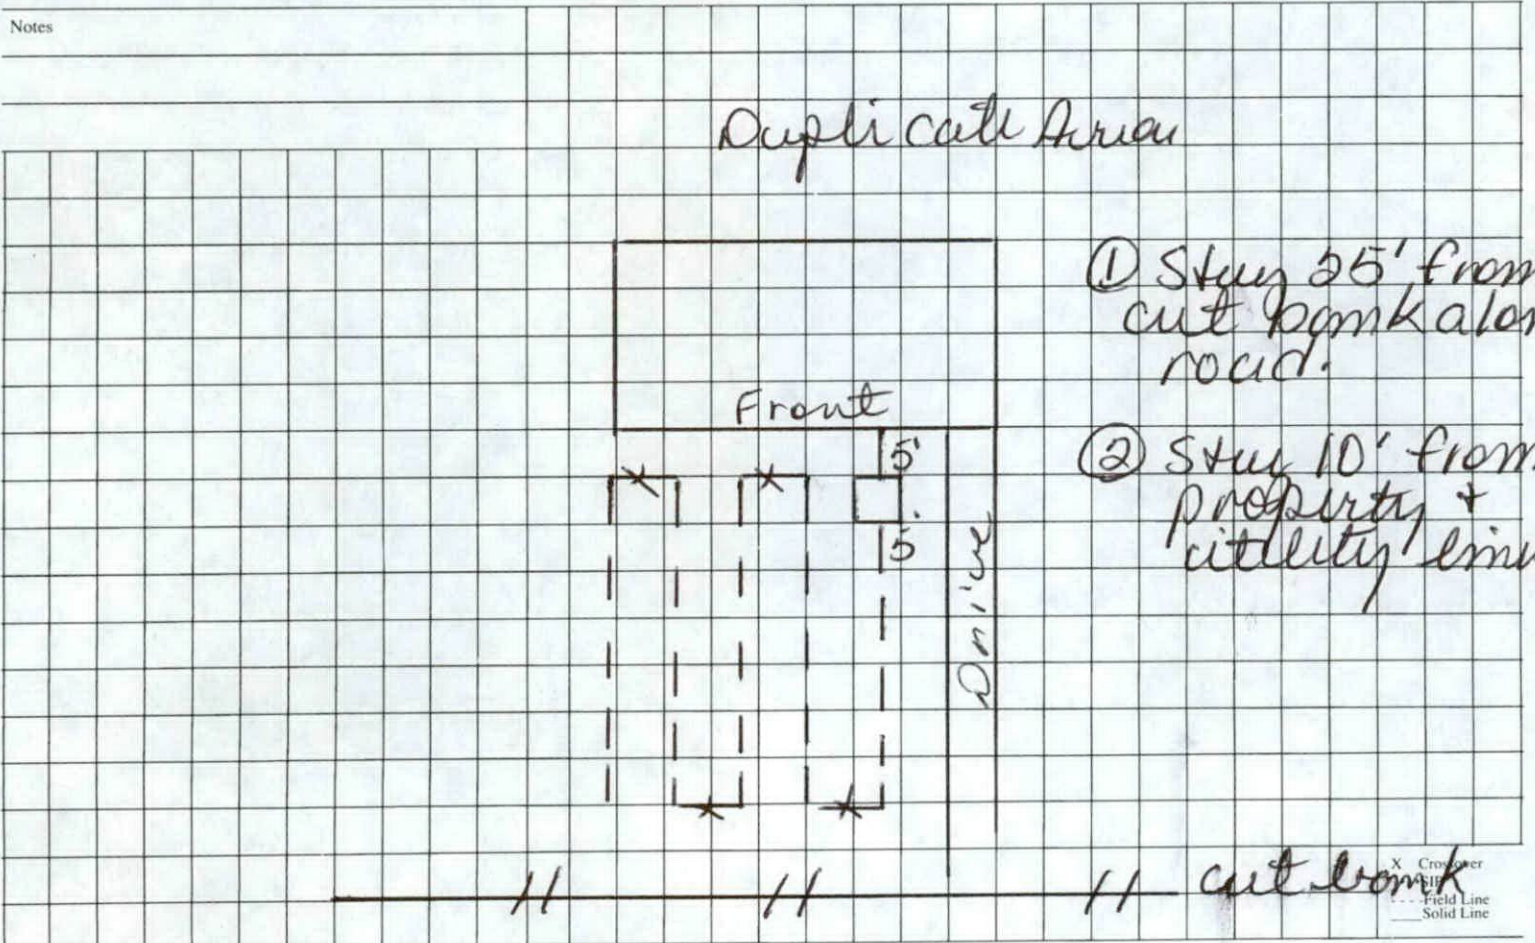 Notes
Duplicate Area
① Stay 25' from
cut bank alon
road.
Front
② Stay 10' from
property +
utility line
5'
5'
Drive
cut bank
X Crossover
Field Line
Solid Line